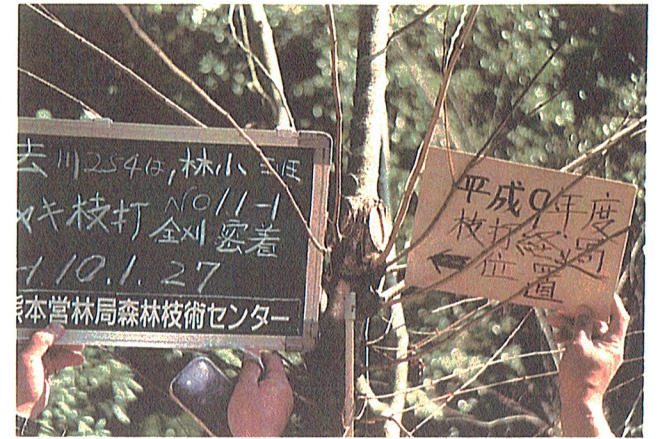 去川254は,林小班
キ枝打 NO11-1
全刈 密着
H.10.1.27
熊本営林局森林技術センター
平成9年度
枝打経過
位置
←